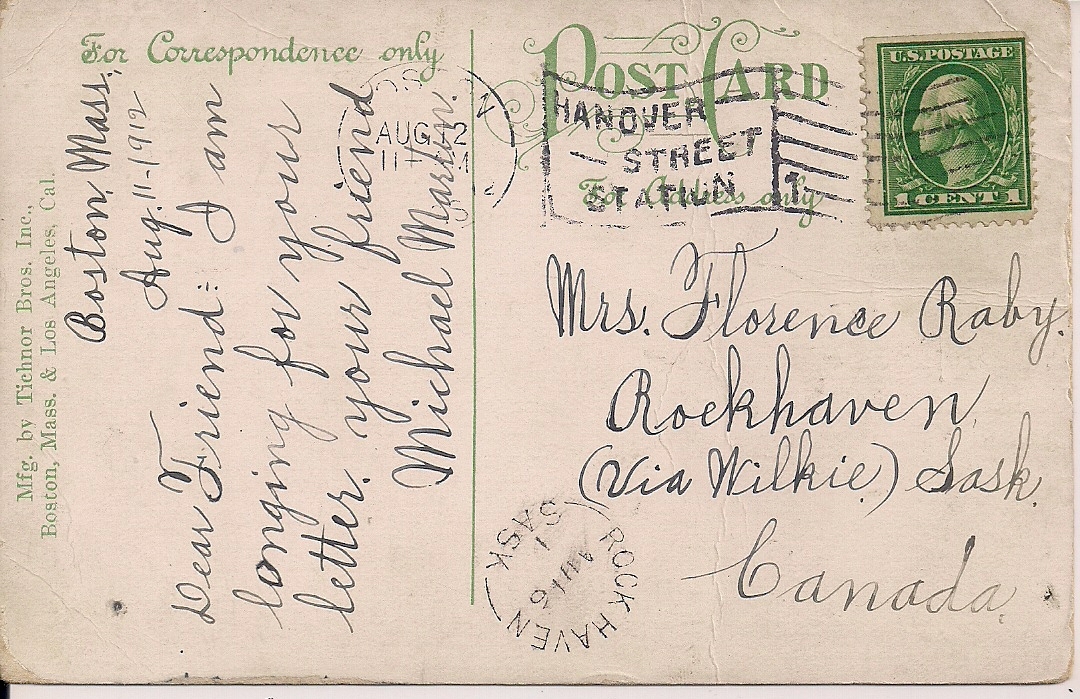 For Correspondence only
POST CARD
For Address only
U.S. POSTAGE
1 CENT 1
AUG 12
11
HANOVER
STREET
STATION
1
Mfg. by Tichnor Bros. Inc.,
Boston, Mass. & Los Angeles, Cal.
Boston, Mass.
Aug. 11-1912
Dear Friend: I am
longing for your
letter. your friend
Michael Martin.
Mrs. Florence Raby.
Rockhaven
(Via Wilkie) Sask.
Canada.
ROCKHAVEN
SASK